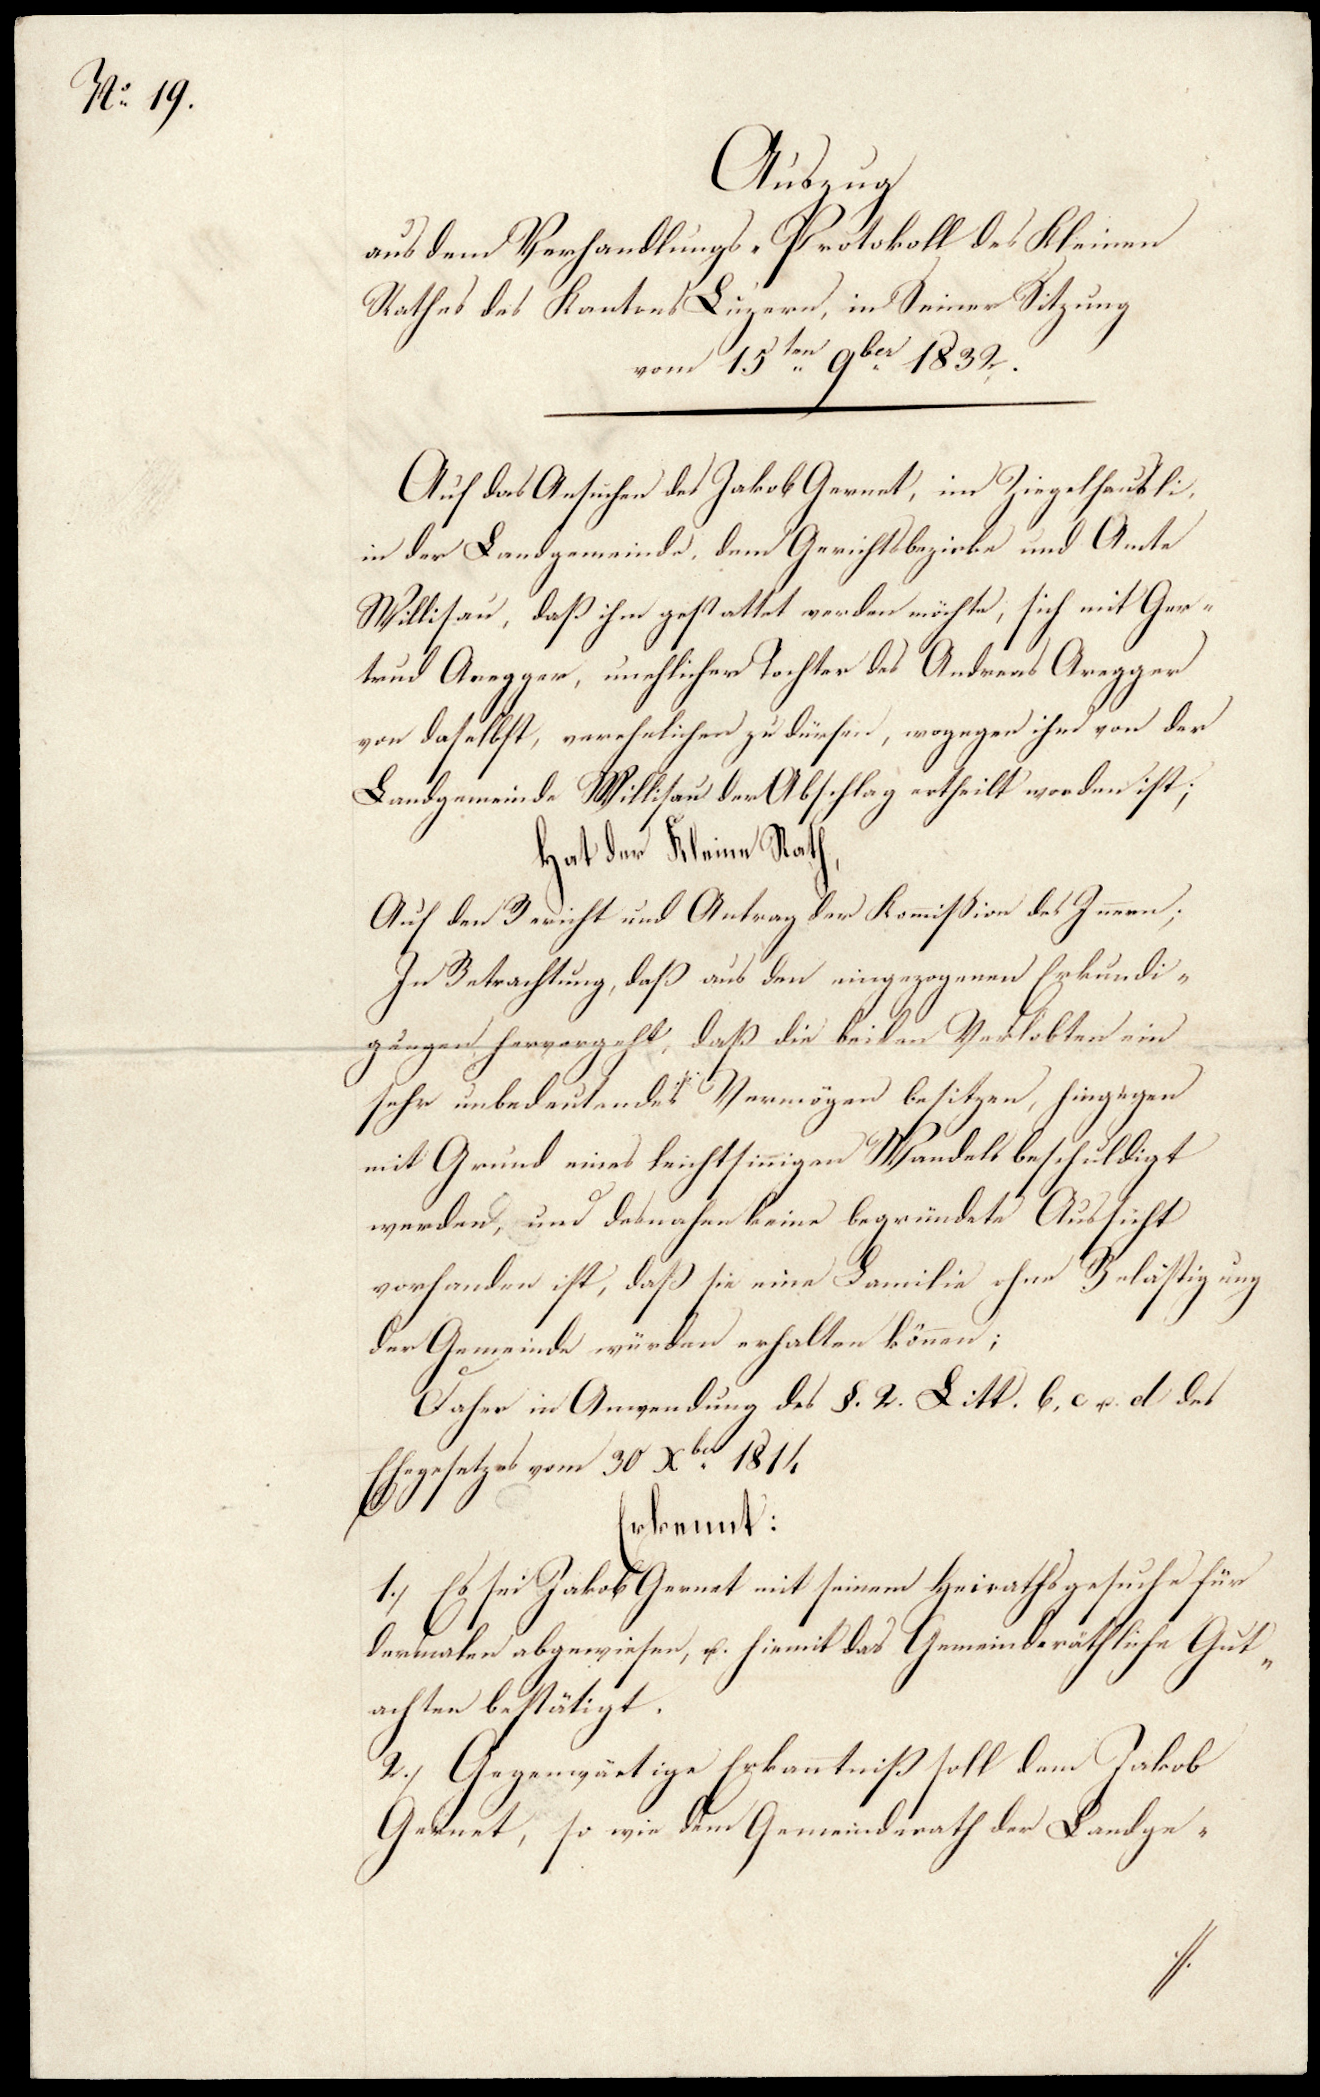 No. 19.
Auszug
aus dem Verhandlungs-Protokoll des Kleinen
Rathes des Kantons Luzern, in Seiner Sitzung
vom 15ten 9ber 1832.
Auf das Ansuchen des Jakob Gernet, im Ziegelhausli,
in der Landgemeinde, dem Gerichtsbezirke und Amte
Willisau, daß ihm gestattet werden möchte, sich mit Ger-
trud Aregger, unehlicher Tochter des Andreas Aregger
von daselbst, verehelichen zu dürfen, wogegen ihm von der
Landgemeinde Willisau der Abschlag ertheilt worden ist;
Hat der Kleine Rath,
Auf den Bericht und Antrag der Komission des Innern;
In Betrachtung, daß aus den eingezogenen Erkundi-
gungen hervorgeht, daß die beiden Verlobten ein
sehr unbedeutendes Vermögen besitzen, hingegen
mit Grund eines leichtsinigen Wandels beschuldigt
werden, und desnahen keine begründete Aussicht
vorhanden ist, daß sie eine Familie ohne Belästigung
der Gemeinde würden erhalten könen;
Daher in Anwendung des §. 2. Litt. b, c u. d des
Ehegesetzes vom 30 Xber 1814
Erkennt:
1.) Es sei Jakob Gernet mit seinem Heirathsgesuche für
dermalen abgewiesen, u. hiemit das Gemeinderäthliche Gut-
achten bestätigt.
2.) Gegenwärtige Erkantniß soll dem Jakob
Gernet, so wie dem Gemeinderath der Landge-
./.